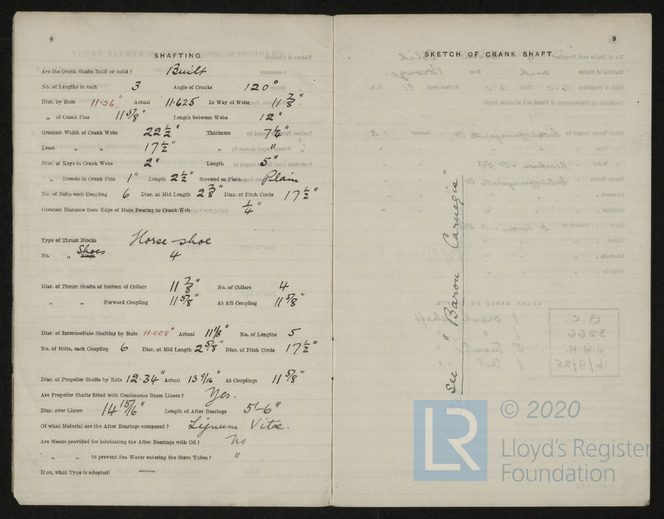 SHAFTING.
Are the Crank Shafts Built or solid? Built
No. of Lengths in each 3 Angle of Cranks 120°
Diar. by Rule 11·56" Actual 11·625 In Way of Webs 11 7/8"
„ of Crank Pins 11 5/8" Length between Webs 12"
Greatest Width of Crank Webs 22 1/2" Thickness 7 1/4"
Least „ „ 17 1/2" „ "
Diar. of Keys in Crank Webs 2" Length 5"
„ Dowels in Crank Pins 1" Length 2 1/2" Screwed or Plain Plain
No. of Bolts each Coupling 6 Diar. at Mid Length 2 5/8" Diar. of Pitch Circle 17 1/2"
Greatest Distance from Edge of Main Bearing to Crank Web 1/4"
Type of Thrust Blocks Horse-shoe
No. „ Shoes 4
Diar. of Thrust Shafts at bottom of Collars 11 7/8" No. of Collars 4
„ „ Forward Coupling 11 5/8" At Aft Coupling 11 5/8"
Diar. of Intermediate Shafting by Rule 11·008" Actual 11 1/8" No. of Lengths 5
No. of Bolts, each Coupling 6 Diar. at Mid Length 2 5/8" Diar. of Pitch Circle 17 1/2"
Diar. of Propeller Shafts by Rule 12·34" Actual 13 9/16" At Couplings 11 5/8"
Are Propeller Shafts fitted with Continuous Brass Liners? Yes.
Diar. over Liners 14 15/16" Length of After Bearings 5'-6"
Of what Material are the After Bearings composed? Lignum Vitæ.
Are Means provided for lubricating the After Bearings with Oil? No
„ „ to prevent Sea Water entering the Stern Tubes? "
If so, what Type is adopted? —
9
SKETCH OF CRANK SHAFT.
See "Baron Carnegie"
© 2020
LR
Lloyd's Register
Foundation